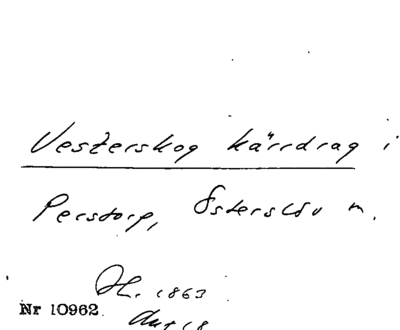 Vesterskog kärrdrag i
Perstorp, Österslöv n.
H. 1863
Nr 10962.